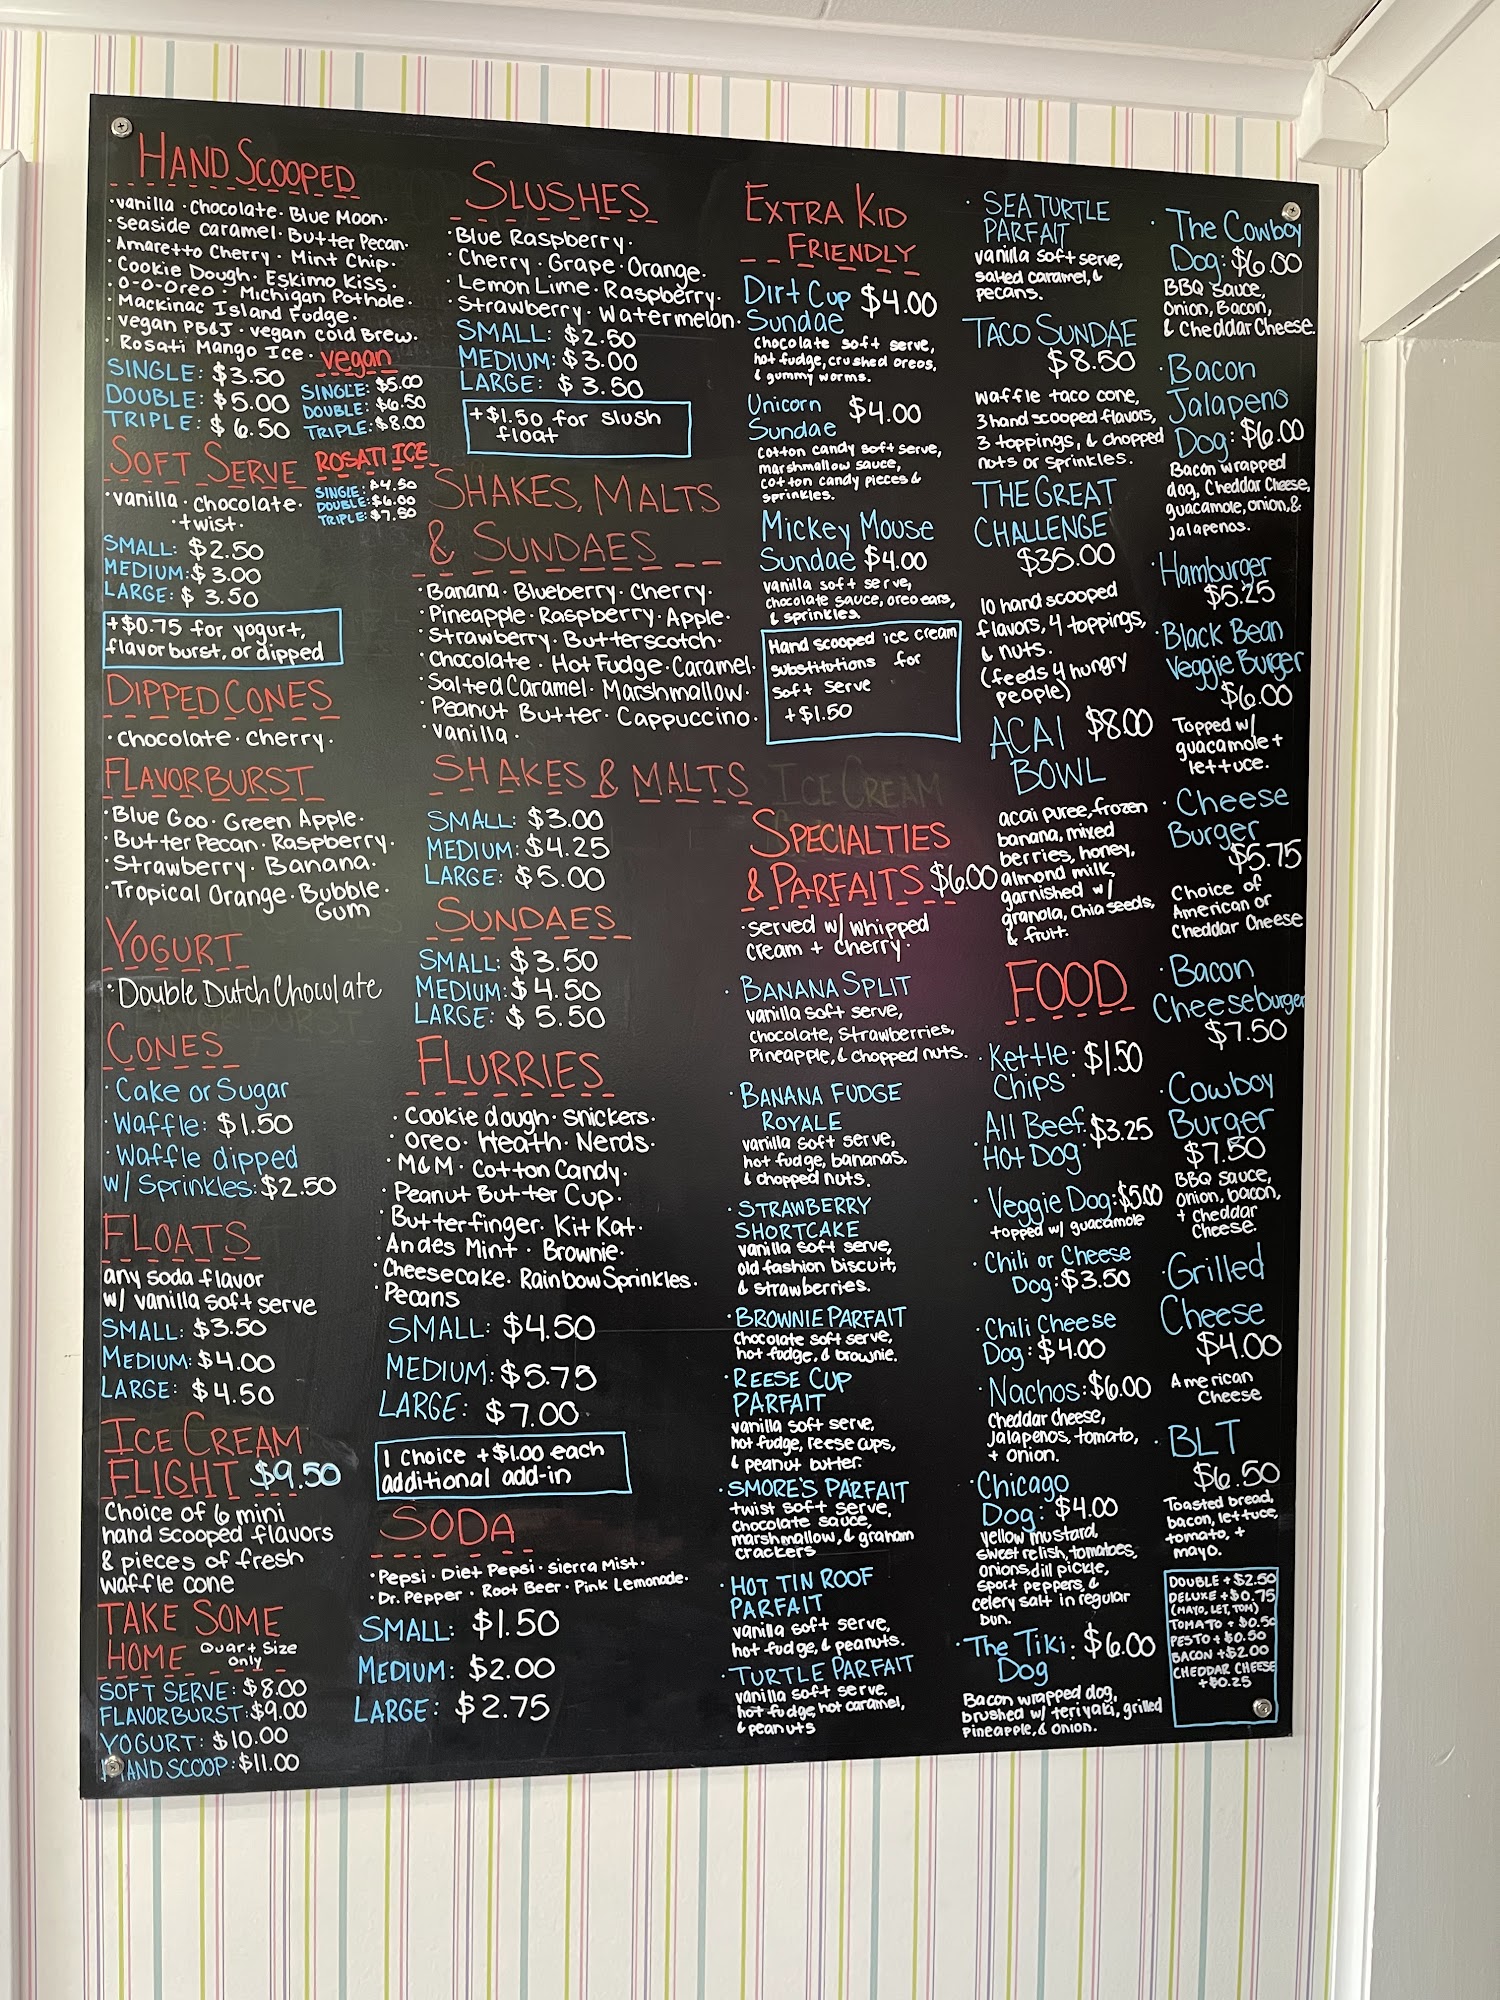 HAND SCOOPED
·vanilla ·Chocolate· Blue Moon·
·seaside caramel· Butter Pecan·
·Amaretto Cherry · Mint Chip·
·Cookie Dough· Eskimo Kiss·
·O-O-Oreo · Michigan Pothole·
·Mackinac Island Fudge·
·vegan PB&J · vegan cold Brew·
·Rosati Mango Ice·
SINGLE: $3.50
DOUBLE: $5.00
TRIPLE: $6.50
vegan
SINGLE: $5.00
DOUBLE: $6.50
TRIPLE: $8.00
ROSATI ICE
SINGLE: $4.50
DOUBLE: $6.00
TRIPLE: $7.50
SOFT SERVE
·vanilla · Chocolate·
·twist·
SMALL: $2.50
MEDIUM: $3.00
LARGE: $3.50
+$0.75 for yogurt,
flavorburst, or dipped
DIPPED CONES
·Chocolate · Cherry·
FLAVORBURST
·Blue Goo · Green Apple·
·Butter Pecan · Raspberry·
·Strawberry · Banana·
·Tropical Orange · Bubble·
Gum
YOGURT
·Double Dutch Chocolate
CONES
·Cake or Sugar
·Waffle: $1.50
·Waffle dipped
w/ Sprinkles: $2.50
FLOATS
any soda flavor
w/ vanilla soft serve
SMALL: $3.50
MEDIUM: $4.00
LARGE: $4.50
ICE CREAM
FLIGHT $9.50
Choice of 6 mini
hand scooped flavors
& pieces of fresh
waffle cone
TAKE SOME
HOME Quart Size
Only
SOFT SERVE: $8.00
FLAVORBURST: $9.00
YOGURT: $10.00
HAND SCOOP: $11.00
SLUSHES
·Blue Raspberry·
·Cherry · Grape · Orange·
·Lemon Lime · Raspberry·
·Strawberry · Watermelon·
SMALL: $2.50
MEDIUM: $3.00
LARGE: $3.50
+$1.50 for slush
float
SHAKES, MALTS
& SUNDAES
·Banana · Blueberry · Cherry·
·Pineapple · Raspberry · Apple·
·Strawberry · Butterscotch·
·Chocolate · Hot Fudge · Caramel·
·Salted Caramel · Marshmallow·
·Peanut Butter · Cappuccino·
·vanilla ·
SHAKES & MALTS
SMALL: $3.00
MEDIUM: $4.25
LARGE: $5.00
SUNDAES
SMALL: $3.50
MEDIUM: $4.50
LARGE: $5.50
FLURRIES
·Cookie dough · Snickers·
·Oreo · Heath · Nerds·
·M&M · Cotton Candy·
·Peanut Butter Cup·
·Butterfinger · Kit Kat·
·Andes Mint · Brownie·
·Cheesecake · Rainbow Sprinkles·
·Pecans
SMALL: $4.50
MEDIUM: $5.75
LARGE: $7.00
1 Choice +$1.00 each
additional add-in
SODA
·Pepsi · Diet Pepsi · Sierra Mist·
·Dr. Pepper · Root Beer · Pink Lemonade·
SMALL: $1.50
MEDIUM: $2.00
LARGE: $2.75
EXTRA KID
FRIENDLY
Dirt Cup $4.00
Sundae
chocolate soft serve,
hot fudge, crushed oreos,
& gummy worms.
Unicorn $4.00
Sundae
cotton candy soft serve,
marshmallow sauce,
cotton candy pieces &
sprinkles.
Mickey Mouse
Sundae $4.00
vanilla soft serve,
chocolate sauce, oreo ears,
& sprinkles.
Hand scooped ice cream
substitutions for
soft serve
+$1.50
ICE CREAM
SPECIALTIES
& PARFAITS $6.00
·served w/ whipped
cream + cherry·
·BANANA SPLIT
vanilla soft serve,
chocolate, strawberries,
Pineapple, & chopped nuts.
·BANANA FUDGE
ROYALE
vanilla soft serve,
hot fudge, bananas,
& chopped nuts.
·STRAWBERRY
SHORTCAKE
vanilla soft serve,
old fashion biscuit,
& strawberries.
·BROWNIE PARFAIT
chocolate soft serve,
hot fudge, & brownie.
·REESE CUP
PARFAIT
vanilla soft serve,
hot fudge, reese cups,
& peanut butter.
·SMORE'S PARFAIT
twist soft serve,
chocolate sauce,
marshmallow, & graham
crackers
·HOT TIN ROOF
PARFAIT
vanilla soft serve,
hot fudge, & peanuts.
·TURTLE PARFAIT
vanilla soft serve,
hot fudge hot caramel,
& peanuts
·SEA TURTLE
PARFAIT
vanilla soft serve,
salted caramel, &
pecans.
TACO SUNDAE
$8.50
waffle taco cone,
3 hand scooped flavors,
3 toppings, & chopped
nuts or sprinkles.
THE GREAT
CHALLENGE
$35.00
10 hand scooped
flavors, 4 toppings,
& nuts.
(feeds 4 hungry
people)
ACAI $8.00
BOWL
acai puree, frozen
banana, mixed
berries, honey,
almond milk,
garnished w/
granola, chia seeds,
& fruit.
FOOD
·Kettle· $1.50
Chips
·All Beef $3.25
Hot Dog
·Veggie Dog: $5.00
topped w/ guacamole
·Chili or Cheese
Dog: $3.50
·Chili Cheese
Dog: $4.00
·Nachos: $6.00
Cheddar cheese,
jalapenos, tomato,
+ onion.
·Chicago
Dog: $4.00
yellow mustard,
sweet relish, tomatoes,
onions, dill pickle,
sport peppers, &
celery salt in regular
bun.
·The Tiki: $6.00
Dog
Bacon wrapped dog,
brushed w/ teriyaki, grilled
Pineapple, & onion.
·The Cowboy
Dog: $6.00
BBQ sauce,
Onion, Bacon,
& Cheddar Cheese.
·Bacon
Jalapeno
Dog: $6.00
Bacon wrapped
dog, Cheddar Cheese,
guacamole, onion, &
jalapenos.
·Hamburger
$5.25
·Black Bean
Veggie Burger
$6.00
Topped w/
guacamole +
lettuce.
·Cheese
Burger
$5.75
Choice of
American or
Cheddar Cheese
·Bacon
Cheeseburger
$7.50
·Cowboy
Burger
$7.50
BBQ sauce,
onion, bacon,
+ cheddar
Cheese.
·Grilled
Cheese
$4.00
American
Cheese
·BLT
$6.50
Toasted bread,
bacon, lettuce,
tomato, +
mayo.
DOUBLE +$2.50
DELUXE +$0.75
(MAYO, LET, TOM)
TOMATO + $0.50
PESTO + $0.50
BACON +$2.00
CHEDDAR CHEESE
+$0.25